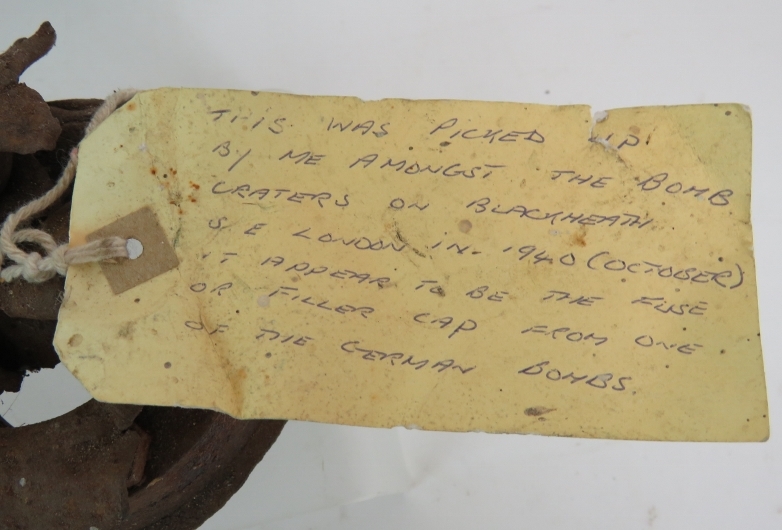 THIS WAS PICKED UP
BY ME AMONGST THE BOMB
CRATERS ON BLACKHEATH
S.E LONDON IN 1940 (OCTOBER)
IT APPEAR TO BE THE FUSE
OR FILLER CAP FROM ONE
OF THE GERMAN BOMBS.